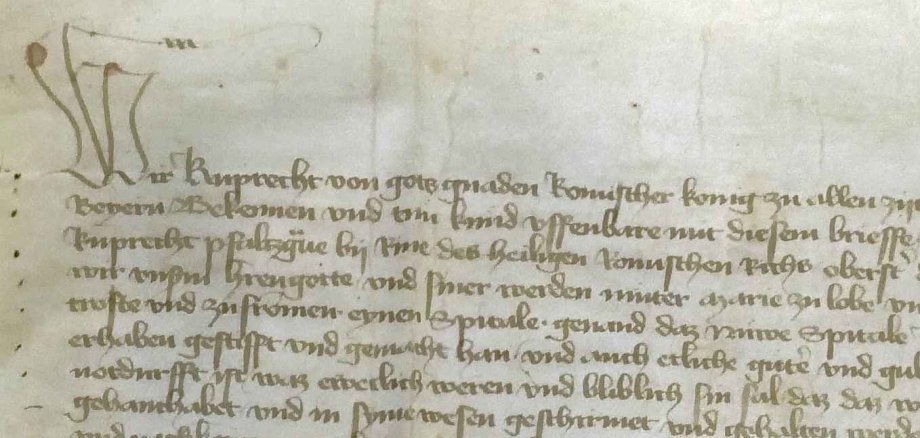 Wir Ruprecht von gots gnaden Romischer konig zu allen zijt
Beyern Bekennen vnd tun kund vffenbare mit diesem brieffe
Ruprecht pfaltzgraue bij Rine des heiligen Romischen Richs oberst
wir vnserm herren gotte vnd siner werden muter Marie zu lobe vn
troste vnd zu fromen eynen Spitale genand daz nuwe Spitale
erhaben gestifft vnd gemacht han vnd auch etliche gute vnd gul
notdurfft ist waz eweclich weren vnd bliblich sin sal daz daz
gehanthabet vnd in syme wesen geschirmet vnd gehalten werd